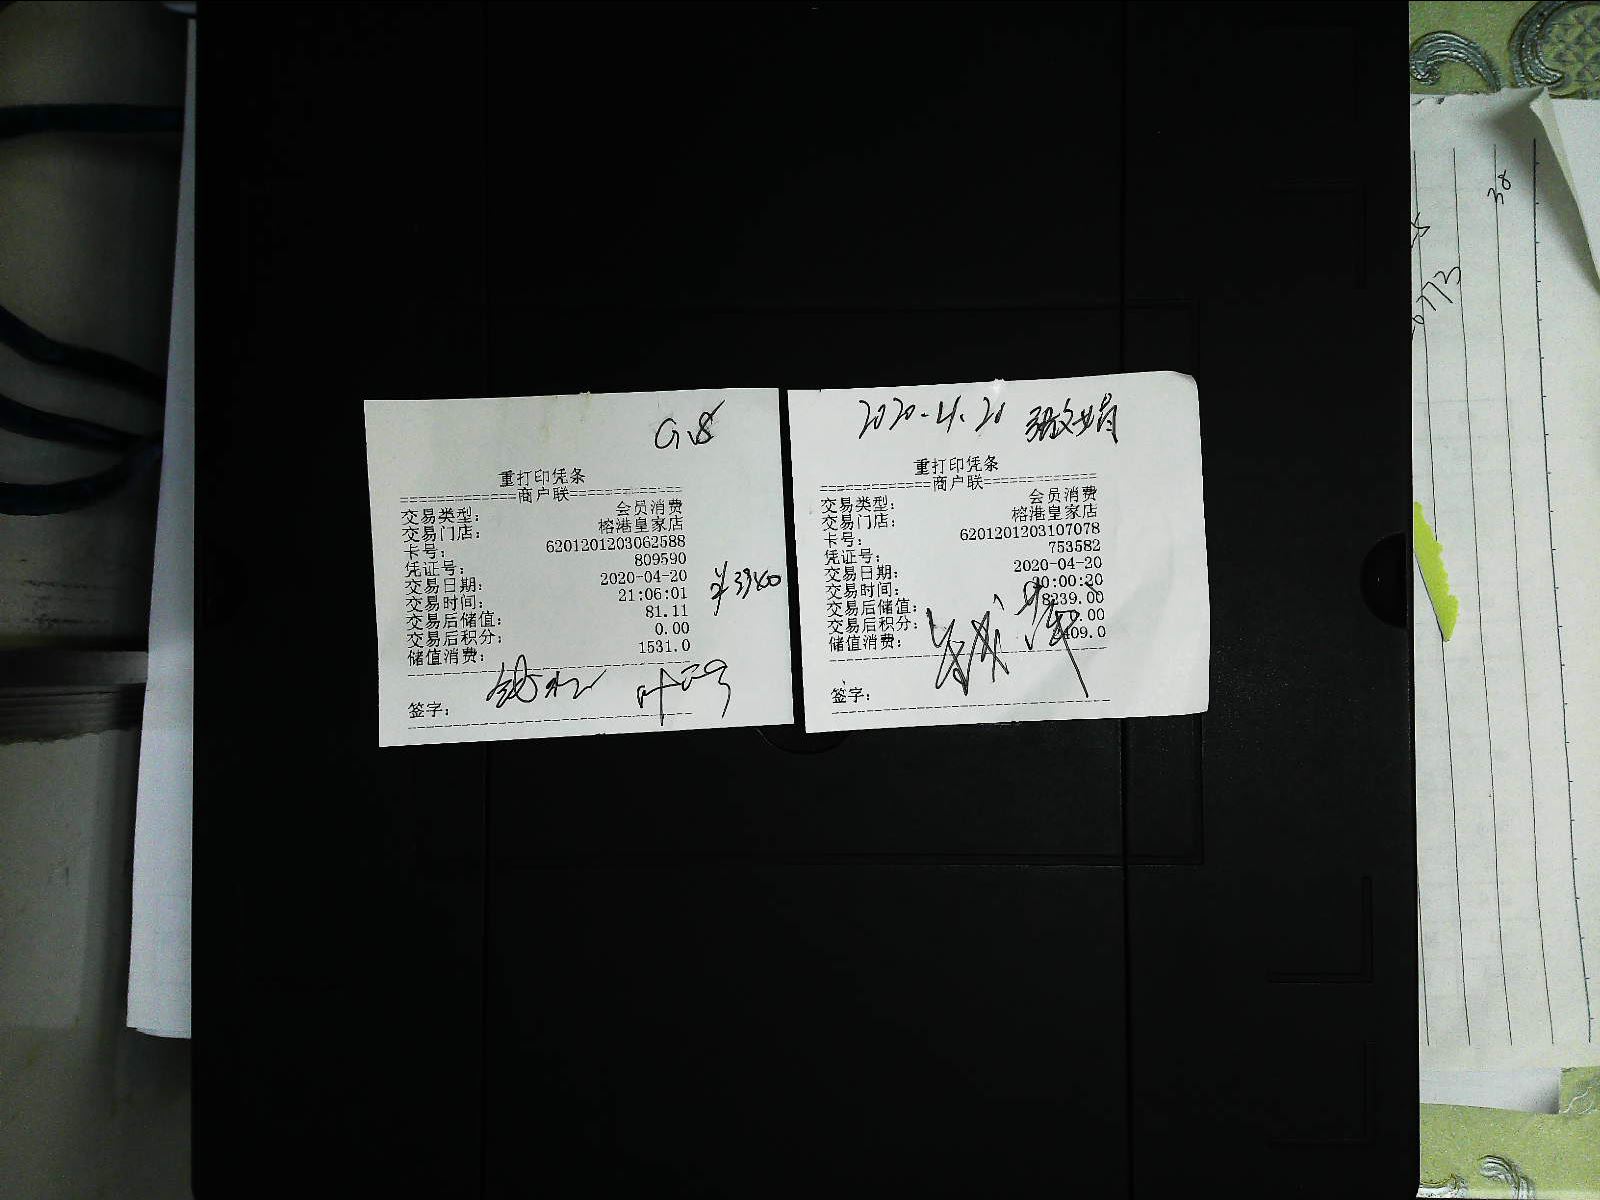 G18
重打印凭条
=============商户联=============
交易类型: 会员消费
交易门店: 榕港皇家店
卡号: 6201201203062588
凭证号: 809590
交易日期: 2020-04-20
交易时间: 21:06:01
交易后储值: 81.11
交易后积分: 0.00
储值消费: 1531.0
签字:
2020.4.20
重打印凭条
=============商户联=============
交易类型: 会员消费
交易门店: 榕港皇家店
卡号: 6201201203107078
凭证号: 753582
交易日期: 2020-04-20
交易时间: 20:00:20
交易后储值: 8239.00
交易后积分:
储值消费:
签字:
38